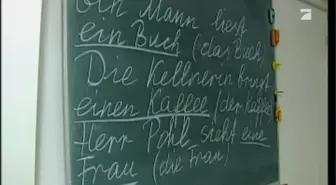 Ein Mann liest
ein Buch (das Buch)
Die Kellnerin bringt
einen Kaffee (der Kaffee
Herr Pohl sieht eine
Frau (die Frau)